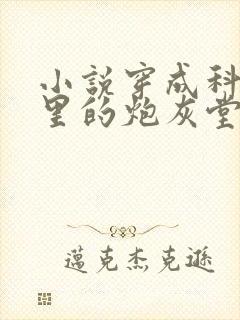 小説穿成科
里的炮灰堂
邁克杰克遜